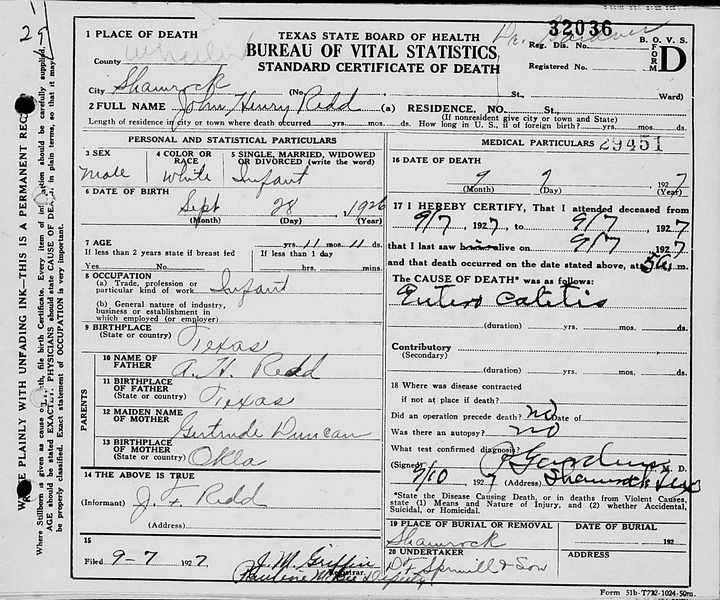 32036
1 PLACE OF DEATH
TEXAS STATE BOARD OF HEALTH
BUREAU OF VITAL STATISTICS
STANDARD CERTIFICATE OF DEATH
Reg. Dis. No.
Registered No.
B. O. V. S.
FORM D
County
City Shamrock (No. St., Ward)
2 FULL NAME John Henry Redd (a) RESIDENCE. NO. St.,
(If nonresident give city or town and State)
Length of residence in city or town where death occurred yrs. mos. ds. How long in U. S., if of foreign birth? yrs. mos. ds.
PERSONAL AND STATISTICAL PARTICULARS
3 SEX
male
4 COLOR OR RACE
White
5 SINGLE, MARRIED, WIDOWED OR DIVORCED (write the word)
Infant
6 DATE OF BIRTH
Sept 28, 1926
(Month) (Day) (Year)
7 AGE yrs. 11 mos. 11 ds.
If less than 2 years state if breast fed If less than 1 day
Yes No hrs. mins.
8 OCCUPATION
(a) Trade, profession or particular kind of work Infant
(b) General nature of industry, business or establishment in which employed (or employer)
9 BIRTHPLACE
(State or country) Texas
PARENTS
10 NAME OF FATHER A. H. Redd
11 BIRTHPLACE OF FATHER
(State or country) Texas
12 MAIDEN NAME OF MOTHER Gertrude Duncan
13 BIRTHPLACE OF MOTHER
(State or country) Okla
14 THE ABOVE IS TRUE
(Informant) J. F. Redd
(Address)
15
Filed 9-7 1927 J. M. Griffin
Registrar.
Deputy
MEDICAL PARTICULARS 29451
16 DATE OF DEATH
9 9 1927
(Month) (Day) (Year)
17 I HEREBY CERTIFY, That I attended deceased from
9/7, 1927, to 9/7, 1927
that I last saw him alive on 9/7, 1927
and that death occurred on the date stated above, at 5 a m.
The CAUSE OF DEATH* was as follows:
Entero Colitis
(duration) yrs. mos. ds.
Contributory
(Secondary)
(duration) yrs. mos. ds.
18 Where was disease contracted
if not at place if death?
Did an operation precede death? no Date of
Was there an autopsy? no
What test confirmed diagnosis?
(Signed) M. D.
9/10 1927 (Address) Shamrock Tex
*State the Disease Causing Death, or in deaths from Violent Causes, state (1) Means and Nature of Injury, and (2) whether Accidental, Suicidal, or Homicidal.
19 PLACE OF BURIAL OR REMOVAL
Shamrock
DATE OF BURIAL
192
20 UNDERTAKER
& Son
ADDRESS
Form 51b-T772-1024-50m.
29
WRITE PLAINLY WITH UNFADING INK—THIS IS A PERMANENT RECORD